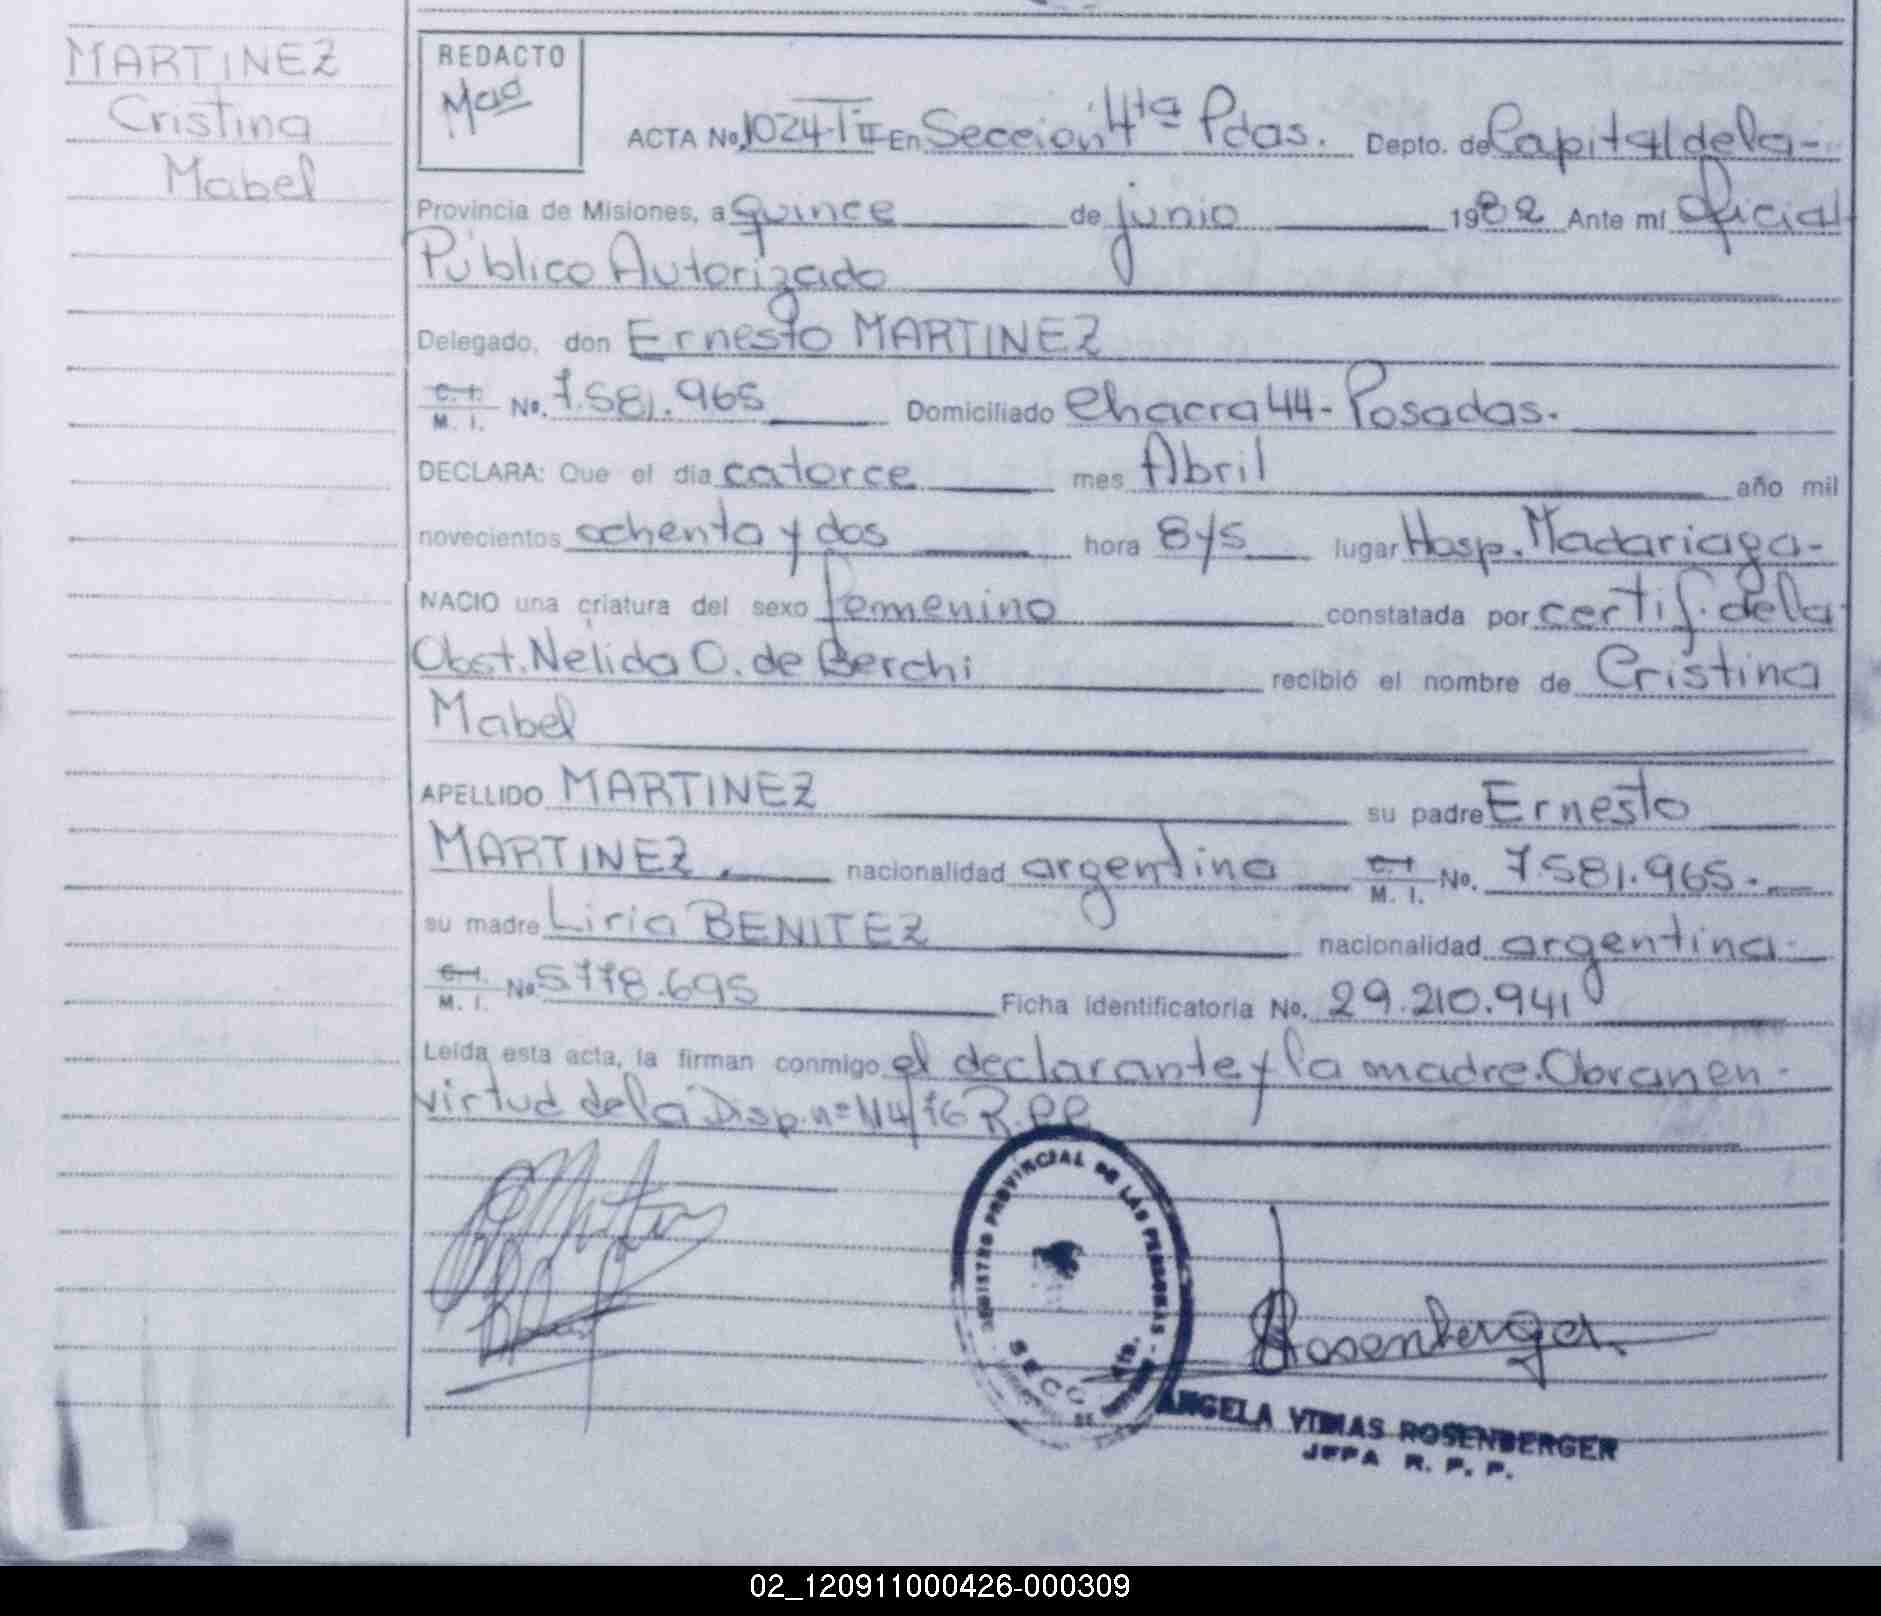 MARTINEZ
Cristina
Mabel
REDACTO
ACTA No. 1024-TII En Seccion 4ta Pdas. Depto. de Capital de la-
Provincia de Misiones, a quince de junio 1982 Ante mí Oficial
Público Autorizado
Delegado, don Ernesto MARTINEZ
C. I. M. I. No. 7.581.965 Domiciliado Chacra 44- Posadas.
DECLARA: Que el día catorce mes Abril año mil
novecientos ochenta y dos hora 8y5 lugar Hosp. Madariaga-
NACIO una criatura del sexo femenino constatada por certif. de la
Obst. Nelida O. de Berchi recibió el nombre de Cristina
Mabel
APELLIDO MARTINEZ su padre Ernesto
MARTINEZ nacionalidad argentina C. I. M. I. No. 7.581.965.
su madre Liria BENITEZ nacionalidad argentina
C. I. M. I. No. 5.778.695 Ficha Identificatoria No. 29.210.941
Leída esta acta, la firman conmigo el declarante y la madre. Obran en
virtud de la Disp. nº 114/76 R.PP
REGISTRO PROVINCIAL DE LAS PERSONAS
SECC 4ta.
Rosenberger
ANGELA ROSENBERGER
JEFA R. P. P.
02_120911000426-000309